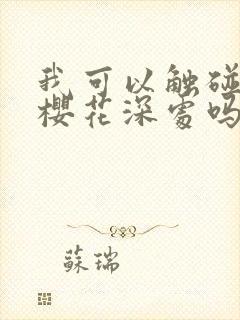 我可以触碰
樱花深处吗
蘇瑞